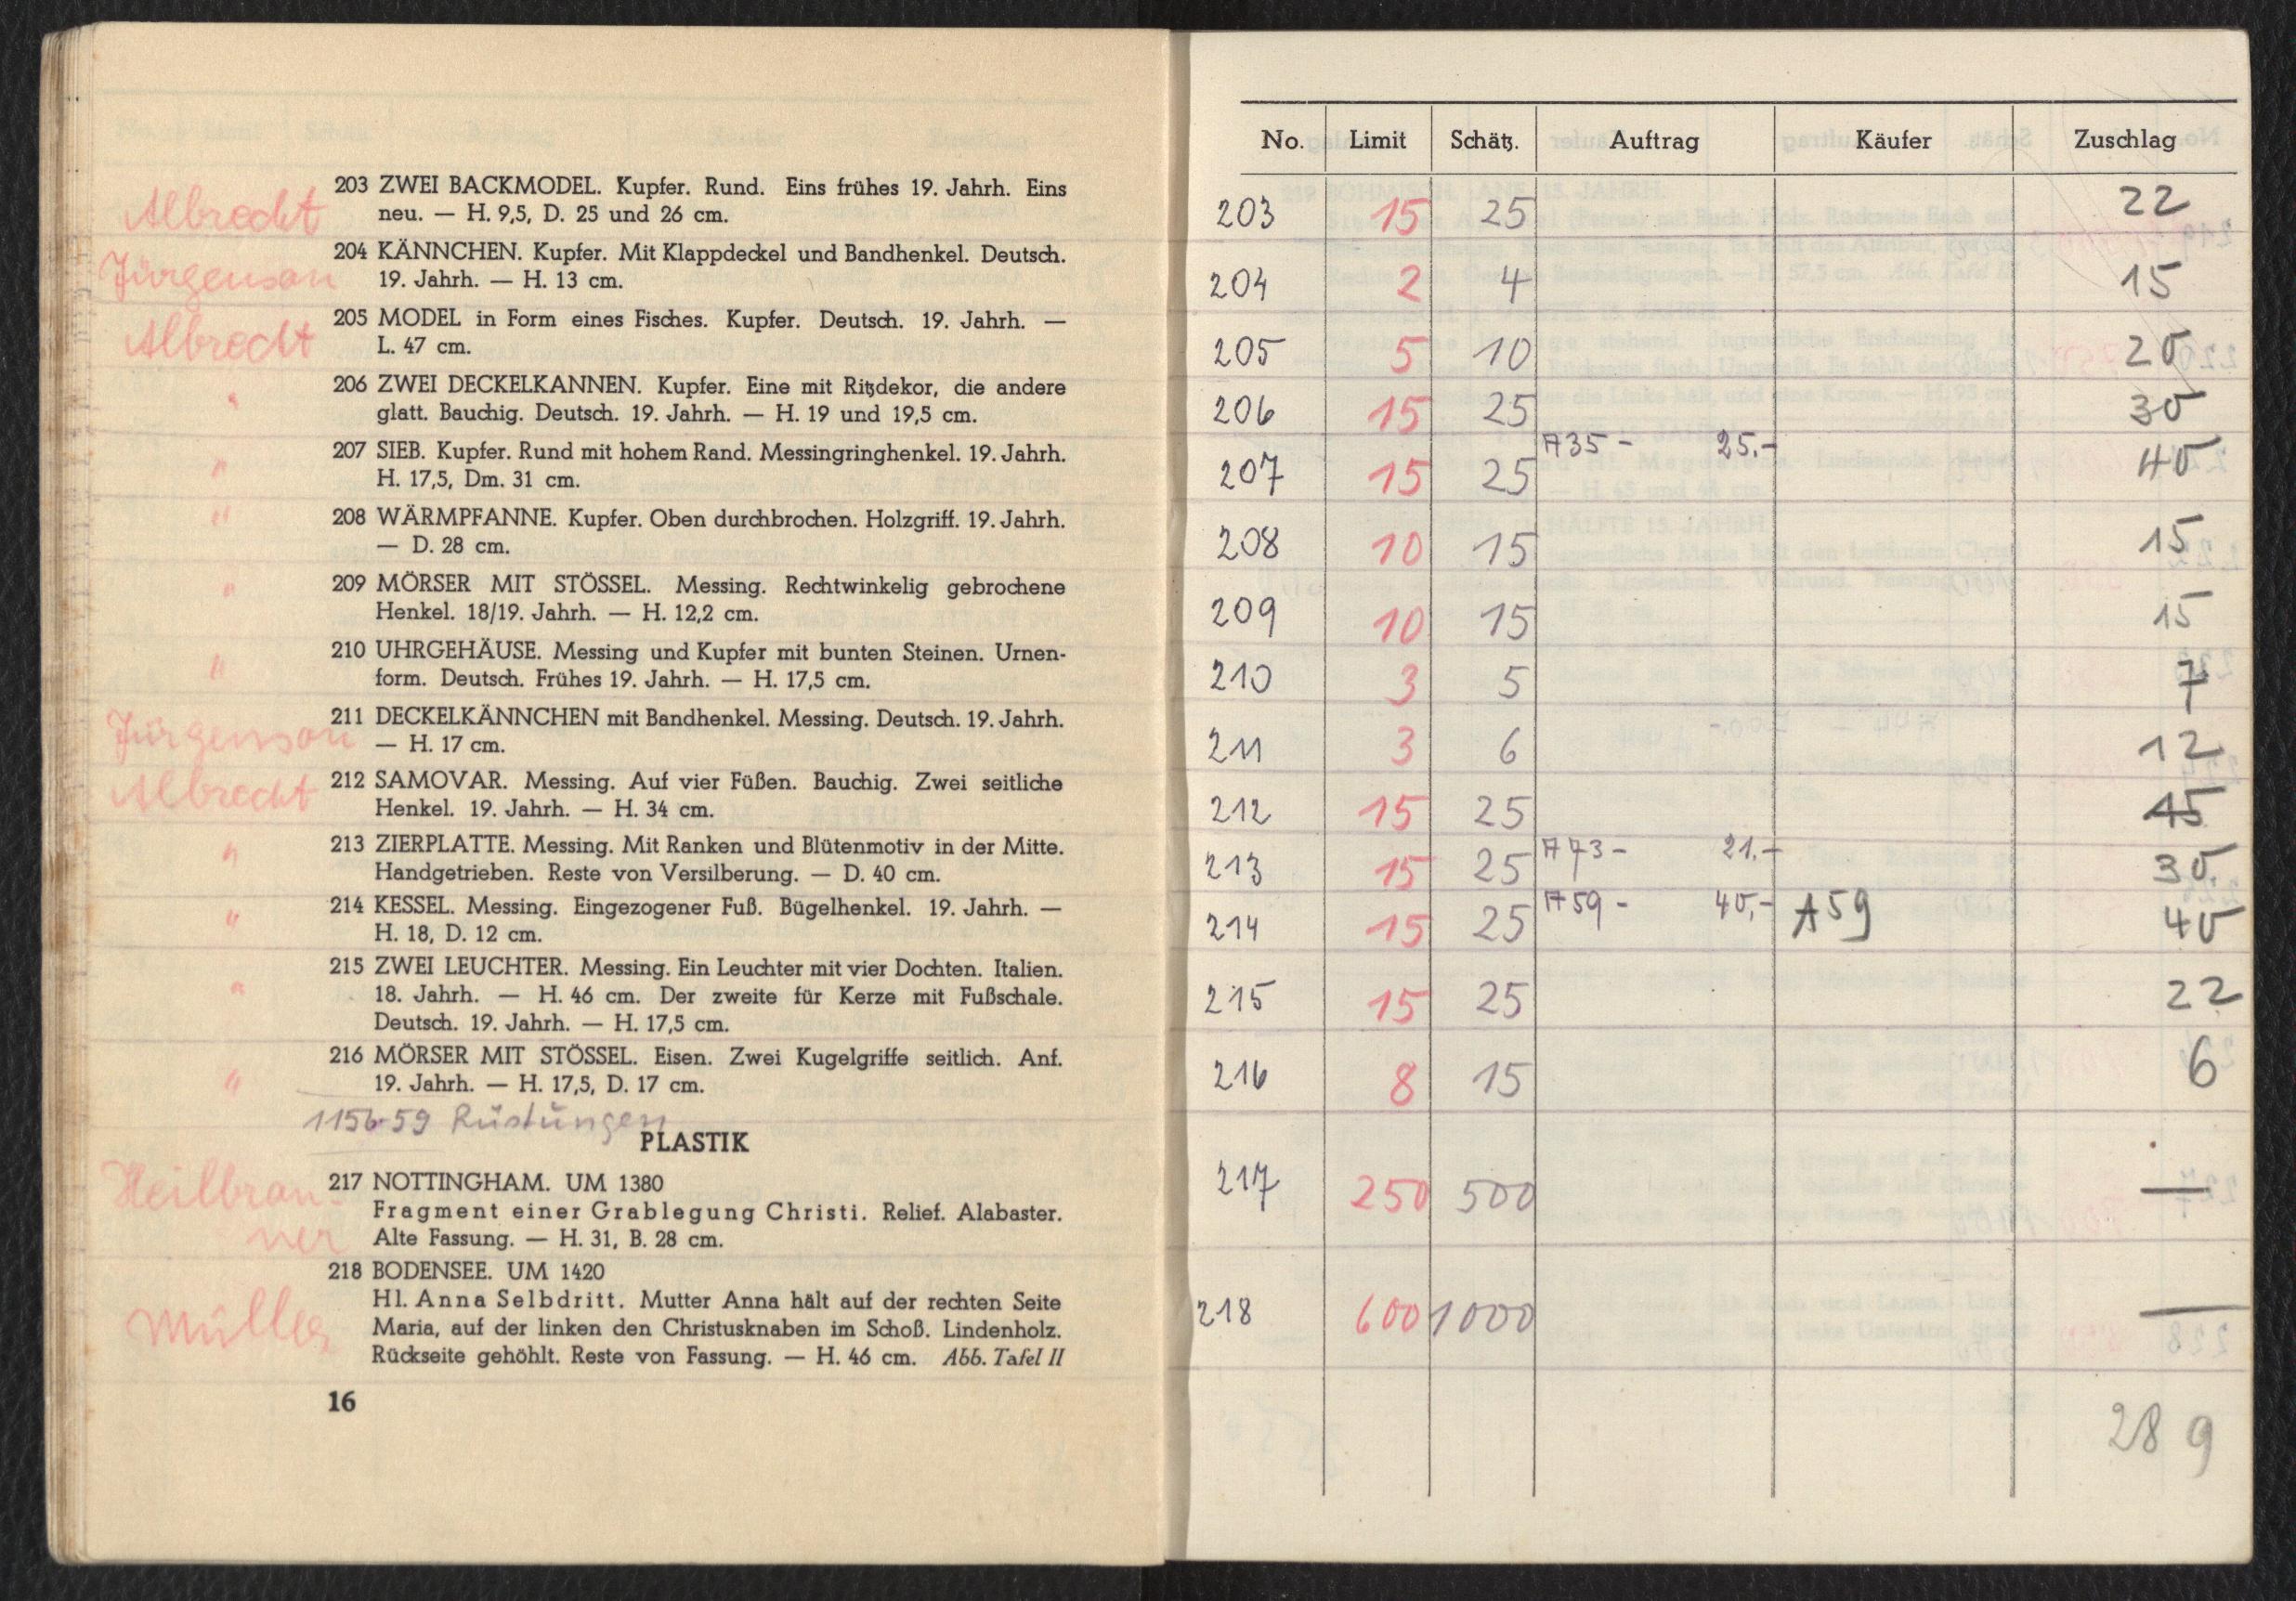 Albrecht
203 ZWEI BACKMODEL. Kupfer. Rund. Eins frühes 19. Jahrh. Eins
neu. — H. 9,5, D. 25 und 26 cm.
Jürgenson
204 KÄNNCHEN. Kupfer. Mit Klappdeckel und Bandhenkel. Deutsch.
19. Jahrh. — H. 13 cm.
Albrecht
205 MODEL in Form eines Fisches. Kupfer. Deutsch. 19. Jahrh. —
L. 47 cm.
"
206 ZWEI DECKELKANNEN. Kupfer. Eine mit Ritzdekor, die andere
glatt. Bauchig. Deutsch. 19. Jahrh. — H. 19 und 19,5 cm.
"
207 SIEB. Kupfer. Rund mit hohem Rand. Messingringhenkel. 19. Jahrh.
H. 17,5, Dm. 31 cm.
"
208 WÄRMPFANNE. Kupfer. Oben durchbrochen. Holzgriff. 19. Jahrh.
— D. 28 cm.
"
209 MÖRSER MIT STÖSSEL. Messing. Rechtwinkelig gebrochene
Henkel. 18/19. Jahrh. — H. 12,2 cm.
"
210 UHRGEHÄUSE. Messing und Kupfer mit bunten Steinen. Urnen-
form. Deutsch. Frühes 19. Jahrh. — H. 17,5 cm.
Jürgenson
211 DECKELKÄNNCHEN mit Bandhenkel. Messing. Deutsch. 19. Jahrh.
— H. 17 cm.
Albrecht
212 SAMOVAR. Messing. Auf vier Füßen. Bauchig. Zwei seitliche
Henkel. 19. Jahrh. — H. 34 cm.
"
213 ZIERPLATTE. Messing. Mit Ranken und Blütenmotiv in der Mitte.
Handgetrieben. Reste von Versilberung. — D. 40 cm.
"
214 KESSEL. Messing. Eingezogener Fuß. Bügelhenkel. 19. Jahrh. —
H. 18, D. 12 cm.
"
215 ZWEI LEUCHTER. Messing. Ein Leuchter mit vier Dochten. Italien.
18. Jahrh. — H. 46 cm. Der zweite für Kerze mit Fußschale.
Deutsch. 19. Jahrh. — H. 17,5 cm.
"
216 MÖRSER MIT STÖSSEL. Eisen. Zwei Kugelgriffe seitlich. Anf.
19. Jahrh. — H. 17,5, D. 17 cm.
1156-59 Rüstungen
PLASTIK
Heilbron-
ner
217 NOTTINGHAM. UM 1380
Fragment einer Grablegung Christi. Relief. Alabaster.
Alte Fassung. — H. 31, B. 28 cm.
Müller
218 BODENSEE. UM 1420
Hl. Anna Selbdritt. Mutter Anna hält auf der rechten Seite
Maria, auf der linken den Christusknaben im Schoß. Lindenholz.
Rückseite gehöhlt. Reste von Fassung. — H. 46 cm. Abb. Tafel II
16
No. Limit Schätz. Auftrag Käufer Zuschlag
203 15 25 22
204 2 4 15
205 5 10 20
206 15 25 30
207 15 25 A 35 - 25.- 40
208 10 15 15
209 10 15 15
210 3 5 7
211 3 6 12
212 15 25 45
213 15 25 A 73 - 21.- 30
214 15 25 A 59 - 40.- A 59 40
215 15 25 22
216 8 15 6
217 250 500 —
218 600 1000 —
289